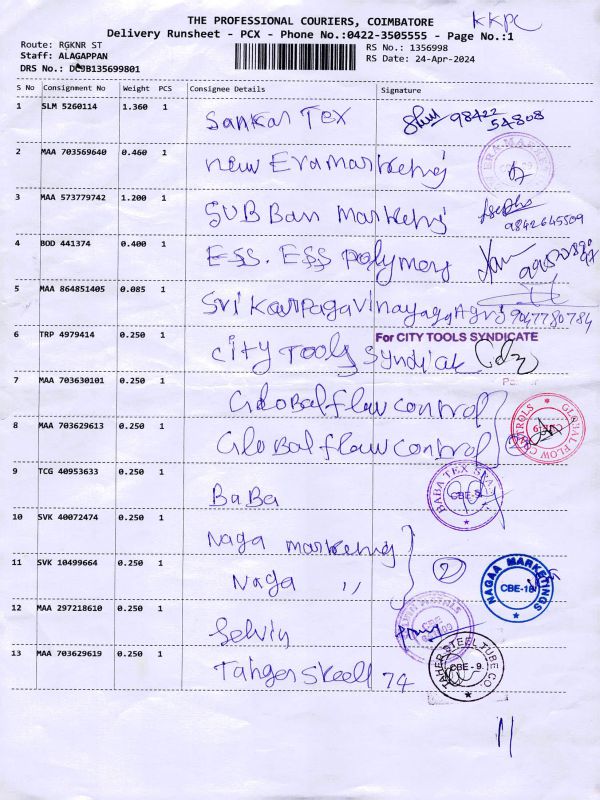 THE PROFESSIONAL COURIERS, COIMBATORE
KKPC
Delivery Runsheet - PCX - Phone No.:0422-3505555 - Page No.:1
Route: RGKNR ST
RS No.: 1356998
Staff: ALAGAPPAN
RS Date: 24-Apr-2024
DRS No.: DC9B135699801
S No Consignment No Weight PCS Consignee Details Signature
1 SLM 5260114 1.360 1 Sankar Tex 98422 54808
2 MAA 703569640 0.460 1 new Era marketing
3 MAA 573779742 1.200 1 SUB Ban marketing 9842645509
4 BOD 441374 0.400 1 ESS. ESS polymers
5 MAA 864851405 0.085 1 Sri Karpagavinayaga Agri 9047780784
For CITY TOOLS SYNDICATE
6 TRP 4979414 0.250 1 City Tools Syndicate
7 MAA 703630101 0.250 1 Global flow control
8 MAA 703629613 0.250 1 Global flow control
GLOBAL FLOW CONTROLS
9 TCG 40953633 0.250 1 BaBa
BABA TEX CBE-9
10 SVK 40072474 0.250 1 Naga marketing
11 SVK 10499664 0.250 1 Naga ,, 2
NAGAA MARKETINGS CBE-18
12 MAA 297218610 0.250 1 Selvin
13 MAA 703629619 0.250 1 Tahger Steell 74
TAHER STEEL TUBE CO. CBE - 9.
11